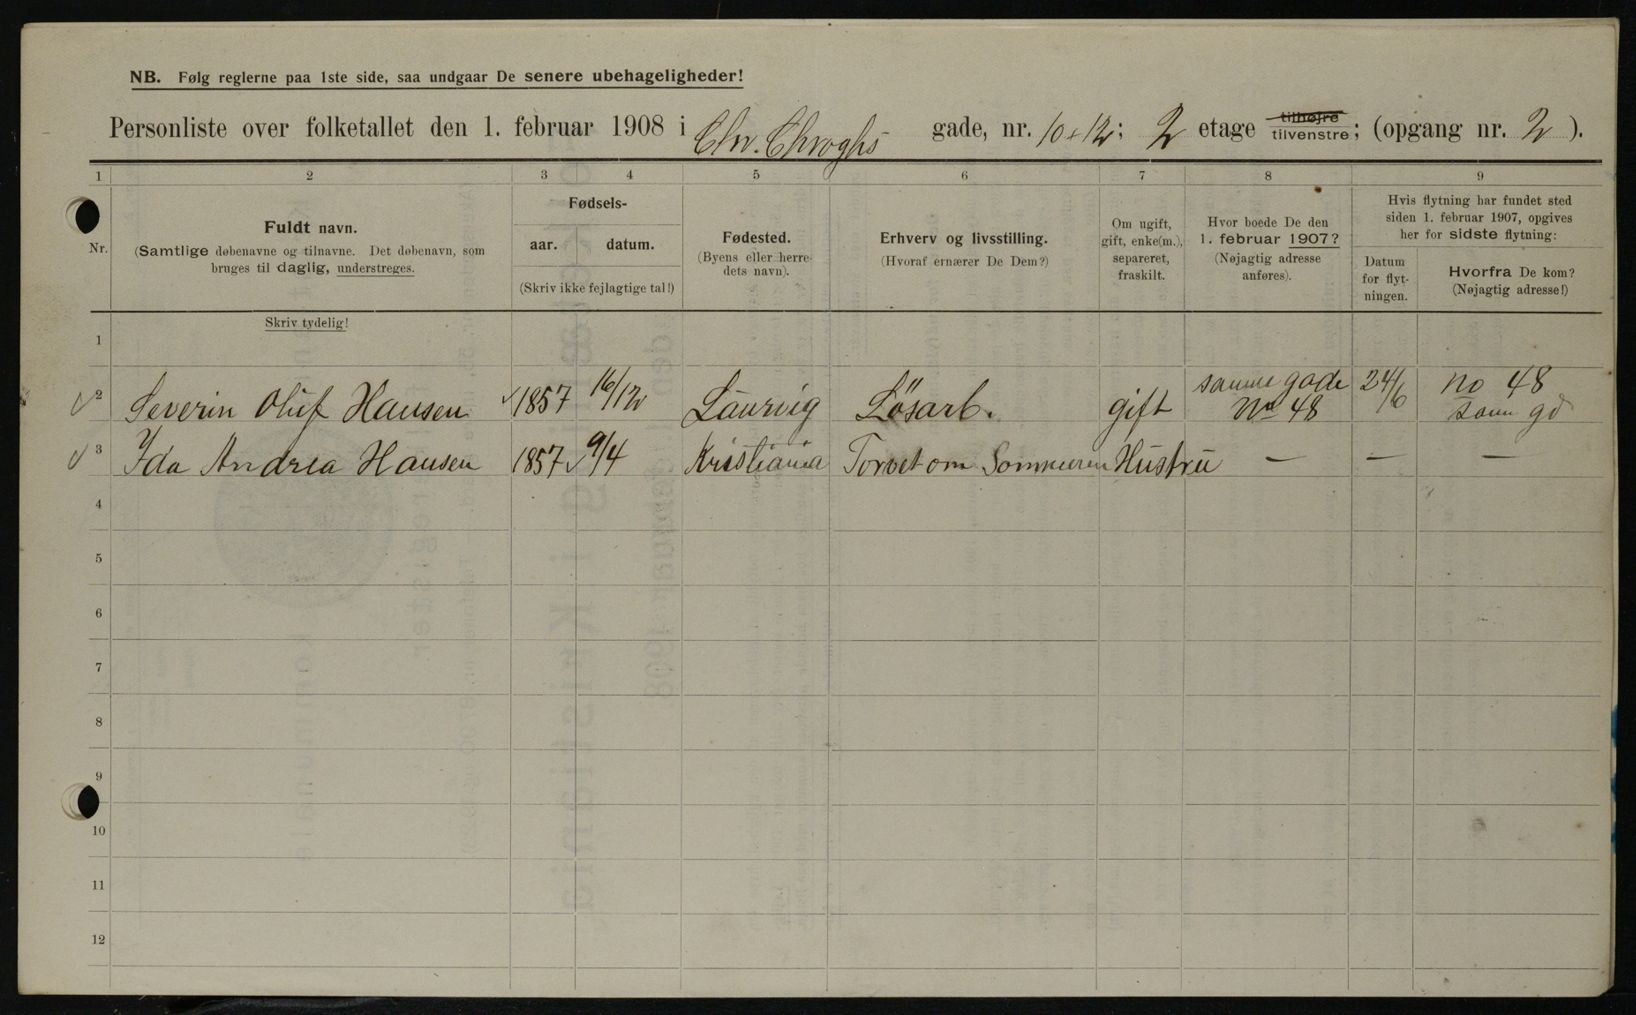 NB. Følg reglerne paa 1ste side, saa undgaar De senere ubehageligheder!
Personliste over folketallet den 1. februar 1908 i Chr. Chroghs gade, nr. 10 + 12; 2 etage tilhøjre tilvenstre; (opgang nr. 2).
1 2 3 4 5 6 7 8 9
Nr.
Fuldt navn.
(Samtlige døbenavne og tilnavne. Det døbenavn, som
bruges til daglig, understreges.
Fødsels-
aar. datum.
(Skriv ikke fejlagtige tal!)
Fødested.
(Byens eller herre-
dets navn).
Erhverv og livsstilling.
(Hvoraf ernærer De Dem?)
Om ugift,
gift, enke(m.),
separeret,
fraskilt.
Hvor boede De den
1. februar 1907?
(Nøjagtig adresse
anføres).
Hvis flytning har fundet sted
siden 1. februar 1907, opgives
her for sidste flytning:
Datum
for flyt-
ningen.
Hvorfra De kom?
(Nøjagtig adresse!)
Skriv tydelig!
1
2 Severin Oluf Hansen 1857 16/12 Laurvig Løsarb. gift samme gade No 48 24/6 no 48 sam gd
3 Ida Andrea Hansen 1857 9/4 Kristiania Torvet om Sommeren Hustru — — —
4
5
6
7
8
9
10
11
12